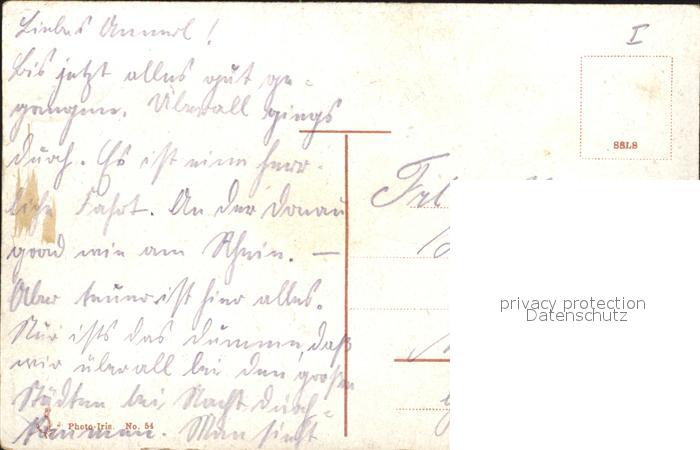 Liebes Annerl!
I
Bis jetzt alles gut ge-
gangen. Überall gings
durch. Es ist eine herr-
liche Fahrt. An der Donau
grad wie am Rhein. —
Aber teuer ist hier alles.
Nur ists das dumme, daß
wir überall bei den großen
Städten bei Nacht durch-
kommen. Man sieht
S&LS
Photo-Iris. No. 54
privacy protection
Datenschutz